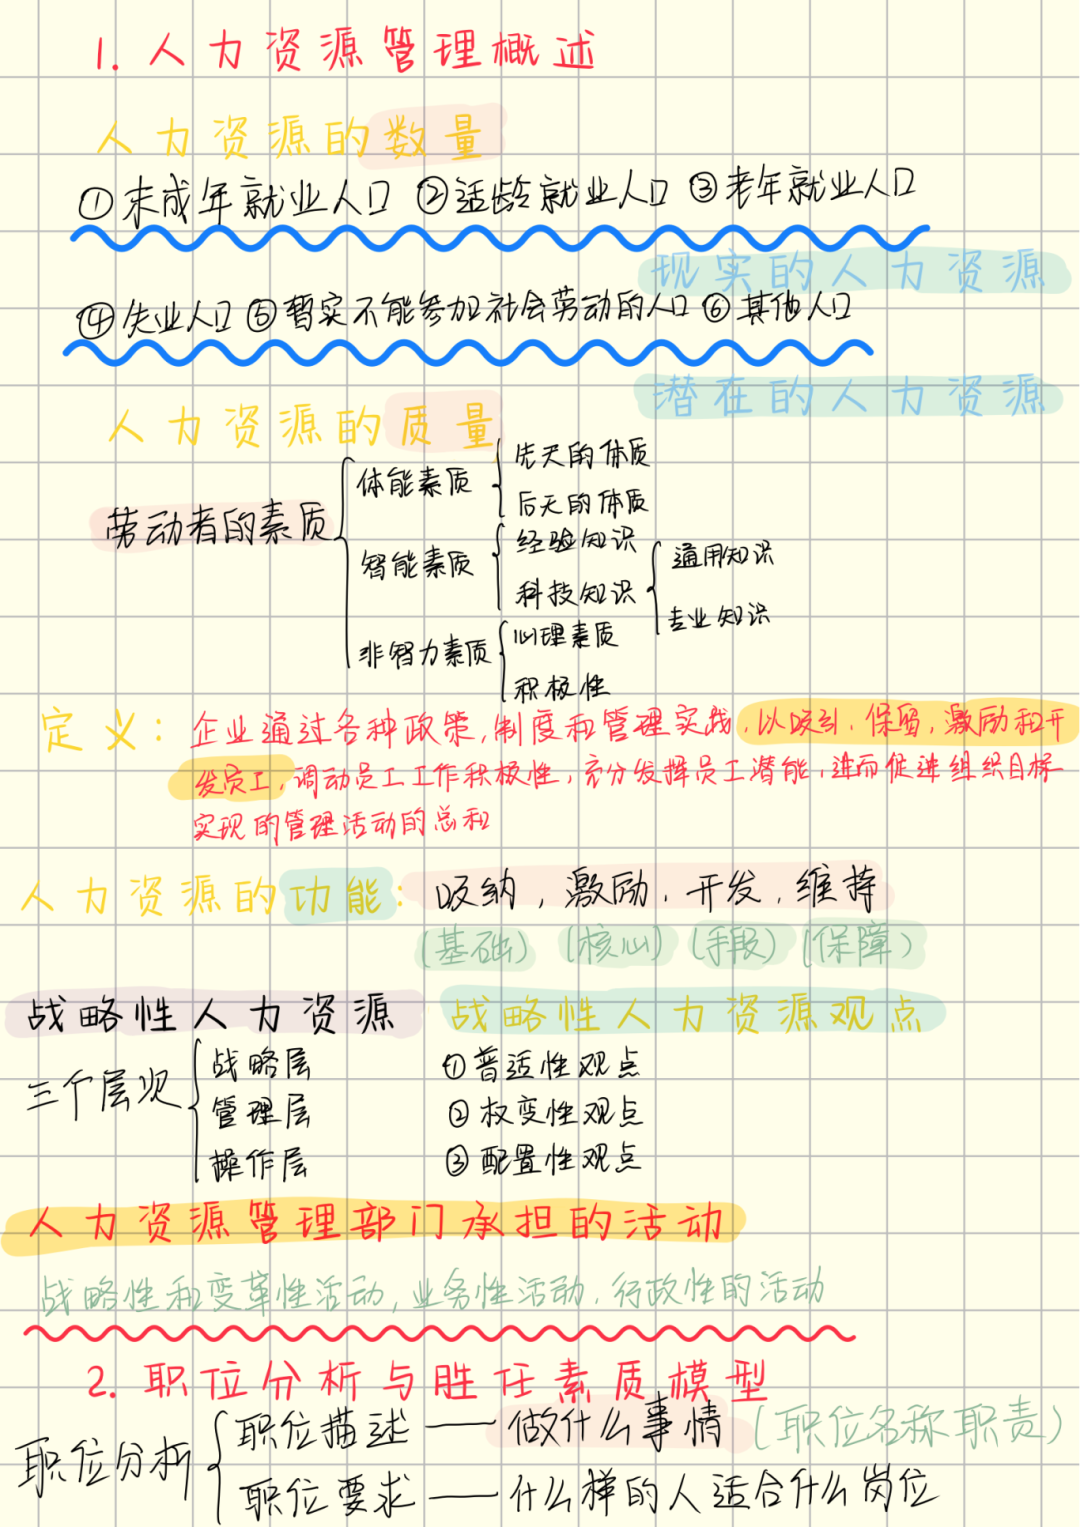 1. 人力资源管理概述
人力资源的数量
①未成年就业人口 ②适龄就业人口 ③老年就业人口
现实的人力资源
④失业人口 ⑤暂实不能参加社会劳动的人口 ⑥其他人口
潜在的人力资源
人力资源的质量
劳动者的素质
体能素质
先天的体质
后天的体质
智能素质
经验知识
科技知识
通用知识
专业知识
非智力素质
心理素质
积极性
定义：企业通过各种政策,制度和管理实践,以吸引,保留,激励和开
发员工,调动员工工作积极性,充分发挥员工潜能,进而促进组织目标
实现的管理活动的总和
人力资源的功能：吸纳，激励，开发，维持
(基础) (核心) (手段) (保障)
战略性人力资源 战略性人力资源观点
三个层次
战略层 ①普适性观点
管理层 ②权变性观点
操作层 ③配置性观点
人力资源管理部门承担的活动
战略性和变革性活动,业务性活动,行政性的活动
2. 职位分析与胜任素质模型
职位分析
职位描述 —— 做什么事情 (职位名称职责)
职位要求 —— 什么样的人适合什么岗位